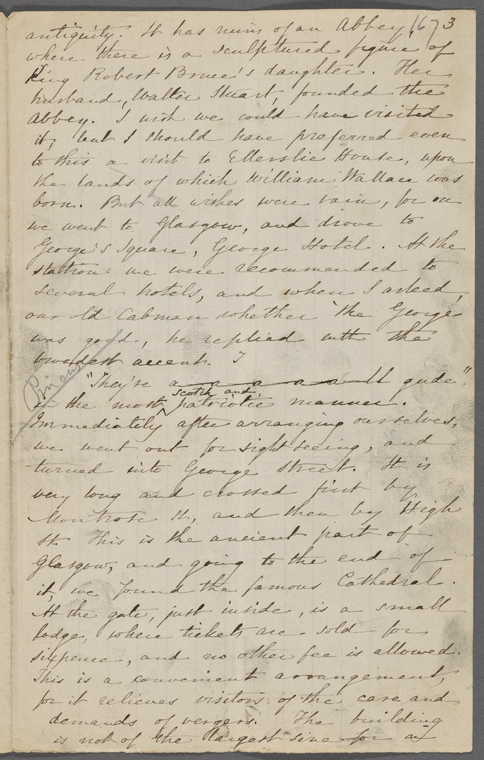 1673
antiquity. It has ruins of an Abbey,
where there is a sculptured figure of
King Robert Bruce's daughter. Her
husband, Walter Stuart, founded the
Abbey. I wish we could have visited
it, but I should have preferred even
to this a visit to Ellerslie House, upon
the lands of which William Wallace was
born. But all wishes were vain, for on
we went to Glasgow, and drove to
George's Square, George Hotel. At the
station we were recommended to
several hotels, and when I asked
our old Cabman whether 'the George'
was good, he replied with the
broadest accent
"They're a a a a a ll gude."
in the most scotch and patriotic manner.
Immediately after arranging ourselves,
we went out for sight-seeing, and
turned into George Street. It is
very long and crossed first by
Montrose St, and then by High
St. This is the ancient part of
Glasgow, and going to the end of
it, we found the famous Cathedral.
At the gate, just inside, is a small
lodge, where tickets are sold for
sixpence, and no other fee is allowed.
This is a convenient arrangement,
for it relieves visitors of the care and
demands of vergers. The building
is not of the largest size for any